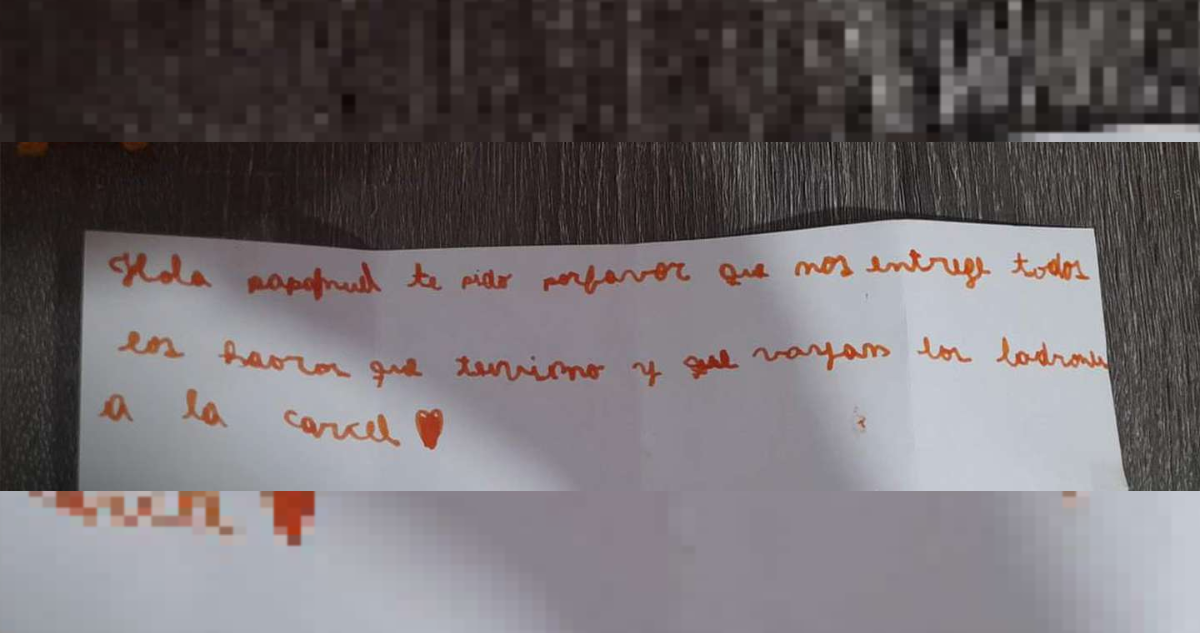 Hola papanuel te pido porfavor que nos entrege todos
los que y que vayan los ladrones
a la carcel